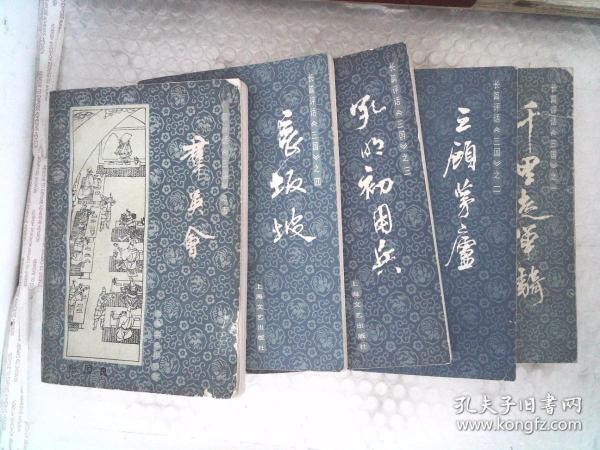 群英會
长坂坡
长篇评话《三国》之四
上海文艺出版社
孔明初用兵
长篇评话《三国》之三
上海文艺出版社
三顾茅廬
长篇评话《三国》之二
千里走单骑
孔夫子旧书网
www.kongfz.com